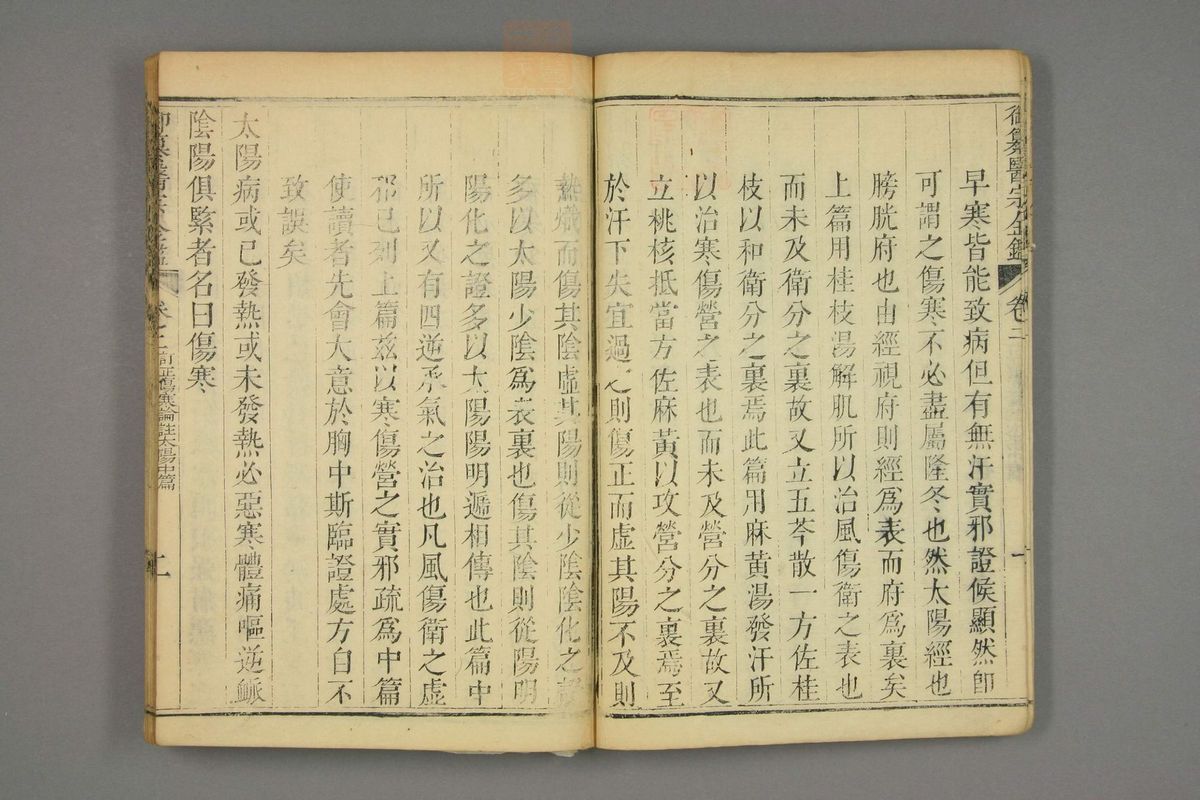 御纂醫宗金鑑 卷二 一
早寒皆能致病但有無汗實邪證候顯然卽
可謂之傷寒不必盡屬隆冬也然太陽經也
膀胱府也由經視府則經爲表而府爲裏矣
上篇用桂枝湯解肌所以治風傷衛之表也
而未及衛分之裏故又立五苓散一方佐桂
枝以和衛分之裏焉此篇用麻黃湯發汗所
以治寒傷營之表也而未及營分之裏故又
立桃核抵當方佐麻黃以攻營分之裏焉至
於汗下失宜過之則傷正而虛其陽不及則
熱熾而傷其陰虛其陽則從少陰陰化之證
多以太陽少陰爲表裏也傷其陰則從陽明
陽化之證多以太陽陽明遞相傳也此篇中
所以又有四逆承氣之治也凡風傷衛之虛
邪已列上篇茲以寒傷營之實邪疏爲中篇
使讀者先會大意於胸中斯臨證處方自不
致誤矣
太陽病或已發熱或未發熱必惡寒體痛嘔逆脈
陰陽俱緊者名曰傷寒
御纂醫宗金鑑 卷之二 訂正傷寒論註太陽中篇 二